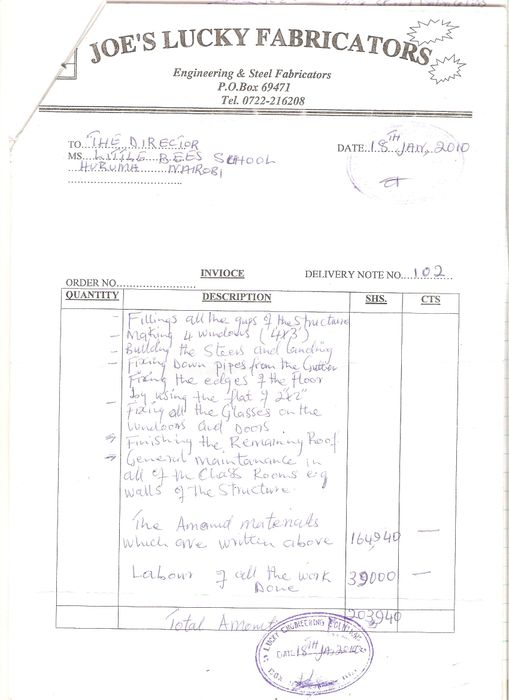 JOE'S LUCKY FABRICATORS
Engineering & Steel Fabricators
P.O.Box 69471
Tel. 0722-216208
TO THE DIRECTOR
DATE 18TH JAN, 2010
MS. LITTLE BEES SCHOOL
HURUMA NAIROBI
INVIOCE
DELIVERY NOTE NO. 102
ORDER NO.
QUANTITY DESCRIPTION SHS. CTS
- Fillings all the gups of the structure
- Making 4 windows (4x3)
- Building the Steers and landing
- Fixing Down pipes from the Gutter
Fixing the edges of the Floor
by using the flat of 2"x2"
- Fixing all the Glasses on the
windoors and Doors.
Finishing the Remaining Roof
General maintanance in
all of the Class Rooms eg
walls of The Structure
The Amount materials
which are written above 164940 -
Labour of all the work 39000 -
Done
Total Amount 203940
LUCKY ENGINEERING
DATE 18TH JA. 2010